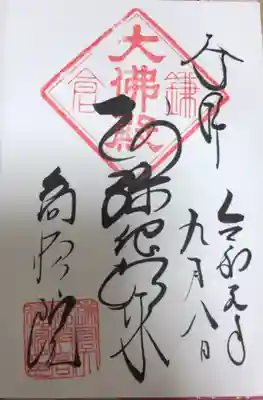 奉拝
令和元年
九月八日
鎌倉
大佛殿
阿弥陀如来
高徳院